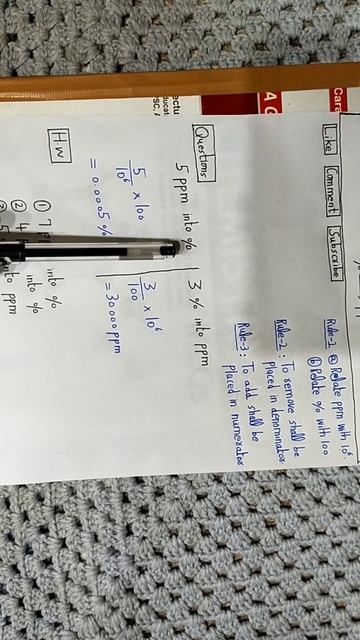 Cara
A C
ectu
ducat
SC,
Like Comment Subscribe
Rule-1 ⓐ Relate ppm with 10⁶
ⓑ Relate % with 100
Rule-2: To remove shall be
placed in denominator
Rule-3: To add shall be
placed in numerator
Questions
5 ppm into %
5/10⁶ × 100
= 0.0005 %
3 % into ppm
3/100 × 10⁶
= 30000 ppm
HW
① 7 into %
② 4 into %
into ppm